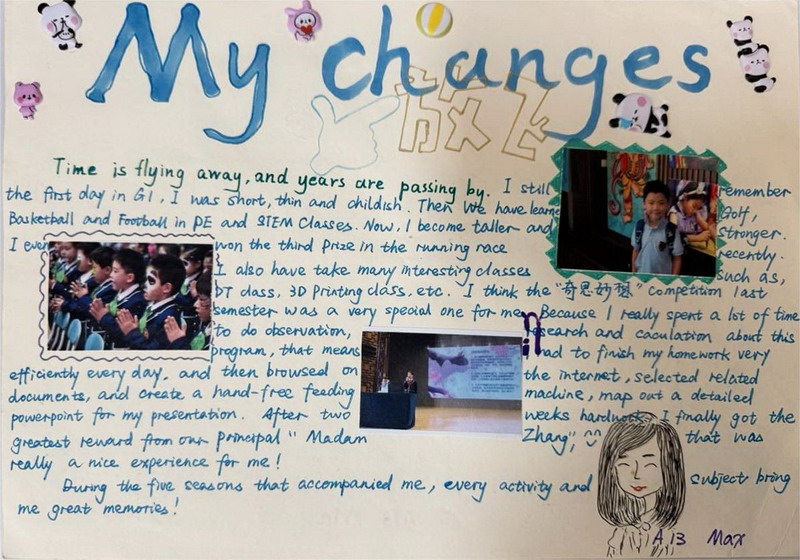 My changes
放飞
Time is flying away, and years are passing by. I still remember
the first day in G1, I was short, thin and childish. Then We have learned Golf,
Basketball and Football in PE and STEM Classes. Now, I become taller and stronger.
I even won the third Prize in the running race recently.
I also have take many interesting classes such as,
DT class, 3D Printing class, etc. I think the "奇思妙想" Competition last
semester was a very special one for me. Because I really spent a lot of time
to do observation, research and caculation about this
program, that means I had to finish my homework very
efficiently every day, and then browsed on the internet, selected related
documents, and create a hand-free feeding machine, map out a detailed
powerpoint for my presentation. After two weeks hardwork, I finally got the
greatest reward from our principal "Madam Zhang", that was
really a nice experience for me!
During the five seasons that accompanied me, every activity and subject bring
me great memories!
A13 Max